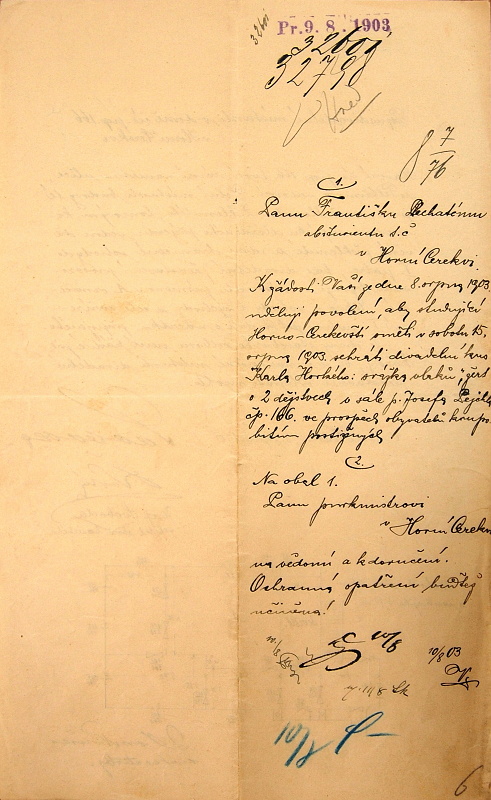 Pr. 9. 8. 1903
32798
8 7/76
1.
Panu Františku Plechatému
absturientu t.č
v Horní Cerekvi.
K žádosti Vaší ze dne 8. srpna 1903
uděluji povolení, aby studující
Horno-Cerekevští směli v sobotu 15.
srpna 1903 sehráti divadelní kus
Karla Horkého: srážka vlaků, žert
o 2 dějstvech v sále p. Josefa
čp. 166. ve prospěch obyvatelů krupo-
bitím postižených
2.
Na obal 1.
Panu purkmistrovi
v Horní Cerekvi
na vědomí a k doručení.
Ochranná opatření buďtež
učiněna!
10/8
10/8 03
10/8
6